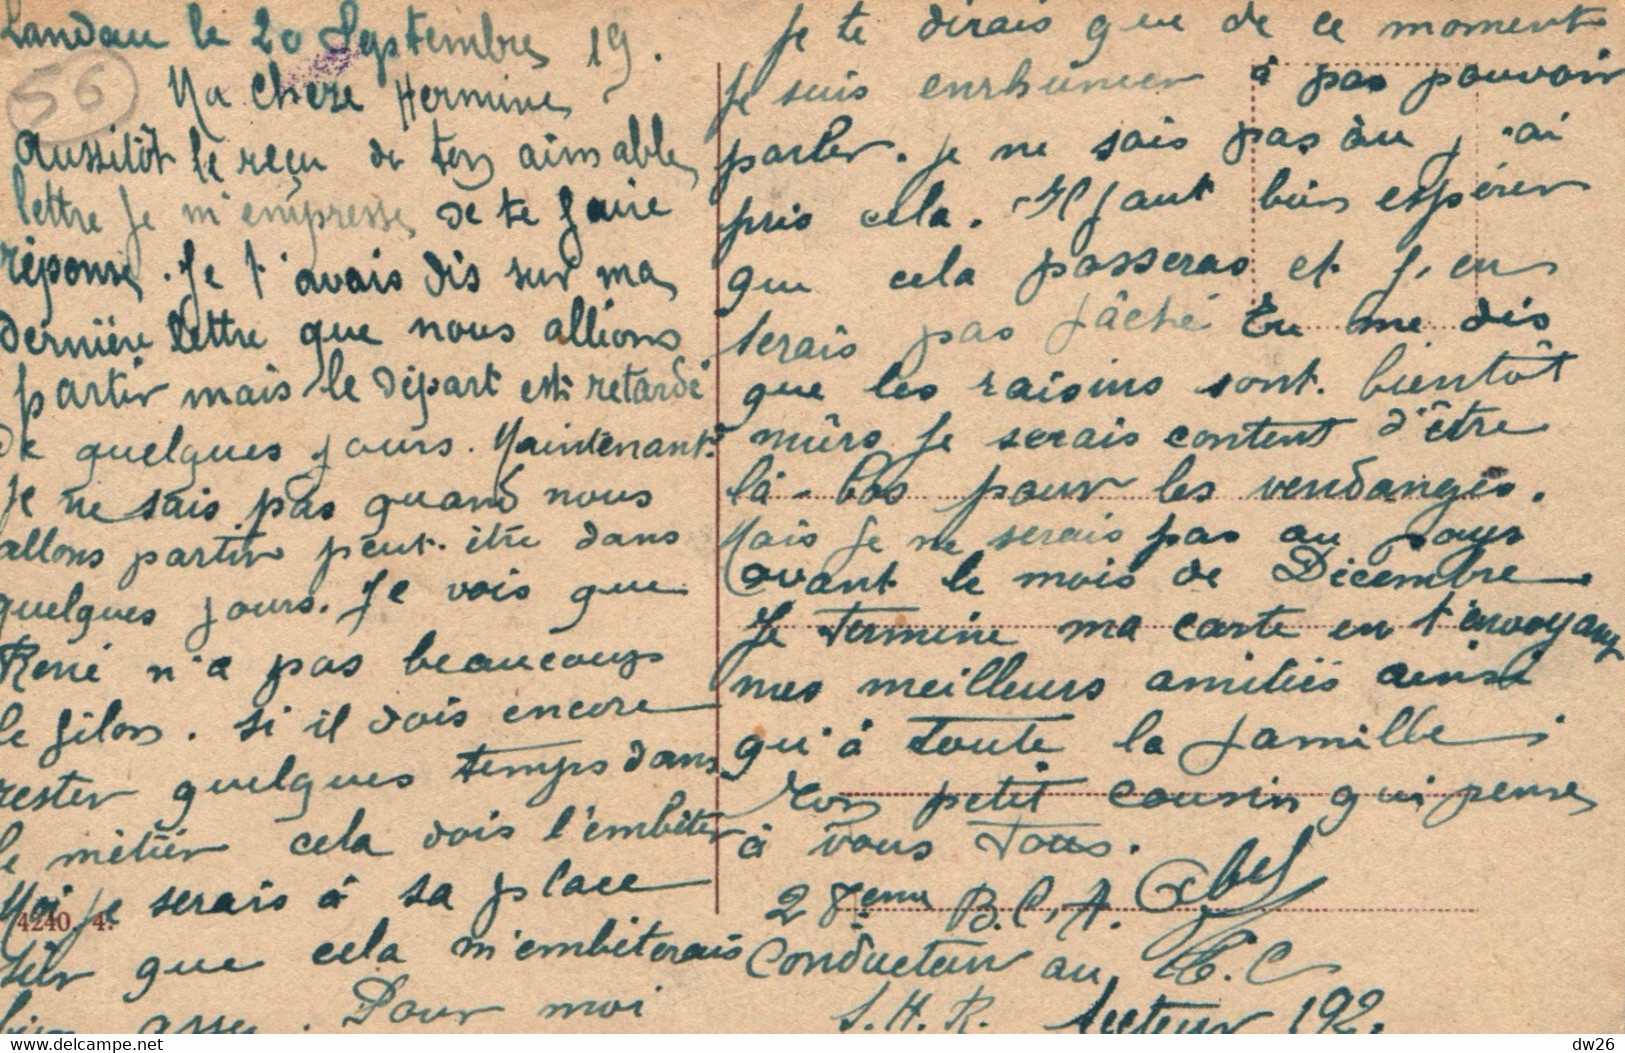 Landau le 20 Septembre 19.
56
Ma Chère Hermine
Aussitôt le reçu de ton aimable
lettre je m'empresse de te faire
réponse. Je t'avais dis sur ma
dernière lettre que nous allions
partir mais le départ est retardé
de quelques jours. Maintenant
je ne sais pas quand nous
allons partir peut-être dans
quelques jours. Je vois que
René n'a pas beaucoup
le filon. Si il dois encore
rester quelques temps dans
le métier cela dois l'embêter
Moi je serais à sa place
4240. 4.
sûr que cela m'embêterais
bien assez. Pour moi
je te dirais que de ce moment
je suis enrhumer à pas pouvoir
parler. je ne sais pas òu j'ai
pris cela. Il faut bien espérer
que cela passeras et j'en
serais pas fâché Tu me dis
que les raisins sont bientôt
mûrs je serais content d'être
là-bas pour les vendanges.
Mais je ne serais pas au pays
avant le mois de Décembre
Je termine ma carte en t'envoyant
mes meilleurs amitiés ainsi
qu'à toute la famille
Ton petit cousin qui pense
à vous tous.
28ème B.C.A. Abel
Conducteur au T.C
S.H.R. Secteur 192.
dw26
www.delcampe.net